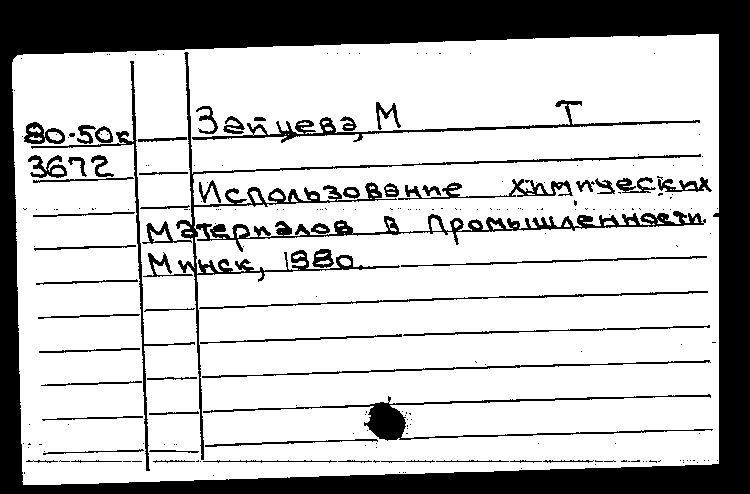 Зайцева, М Т
80-50к
3672
Использование химических
материалов в промышленности.-
Минск, 1980.